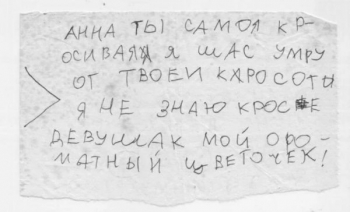 АННА ТЫ САМОЯ КР-
ОСИВАЯ Я ШАС УМРУ
ОТ ТВОЕИ КАРОСОТЫ
Я НЕ ЗНАЮ КРОСЕ
ДЕВУШАК МОЙ ОРО-
МАТНЫЙ ЦВЕТОЧЕК!